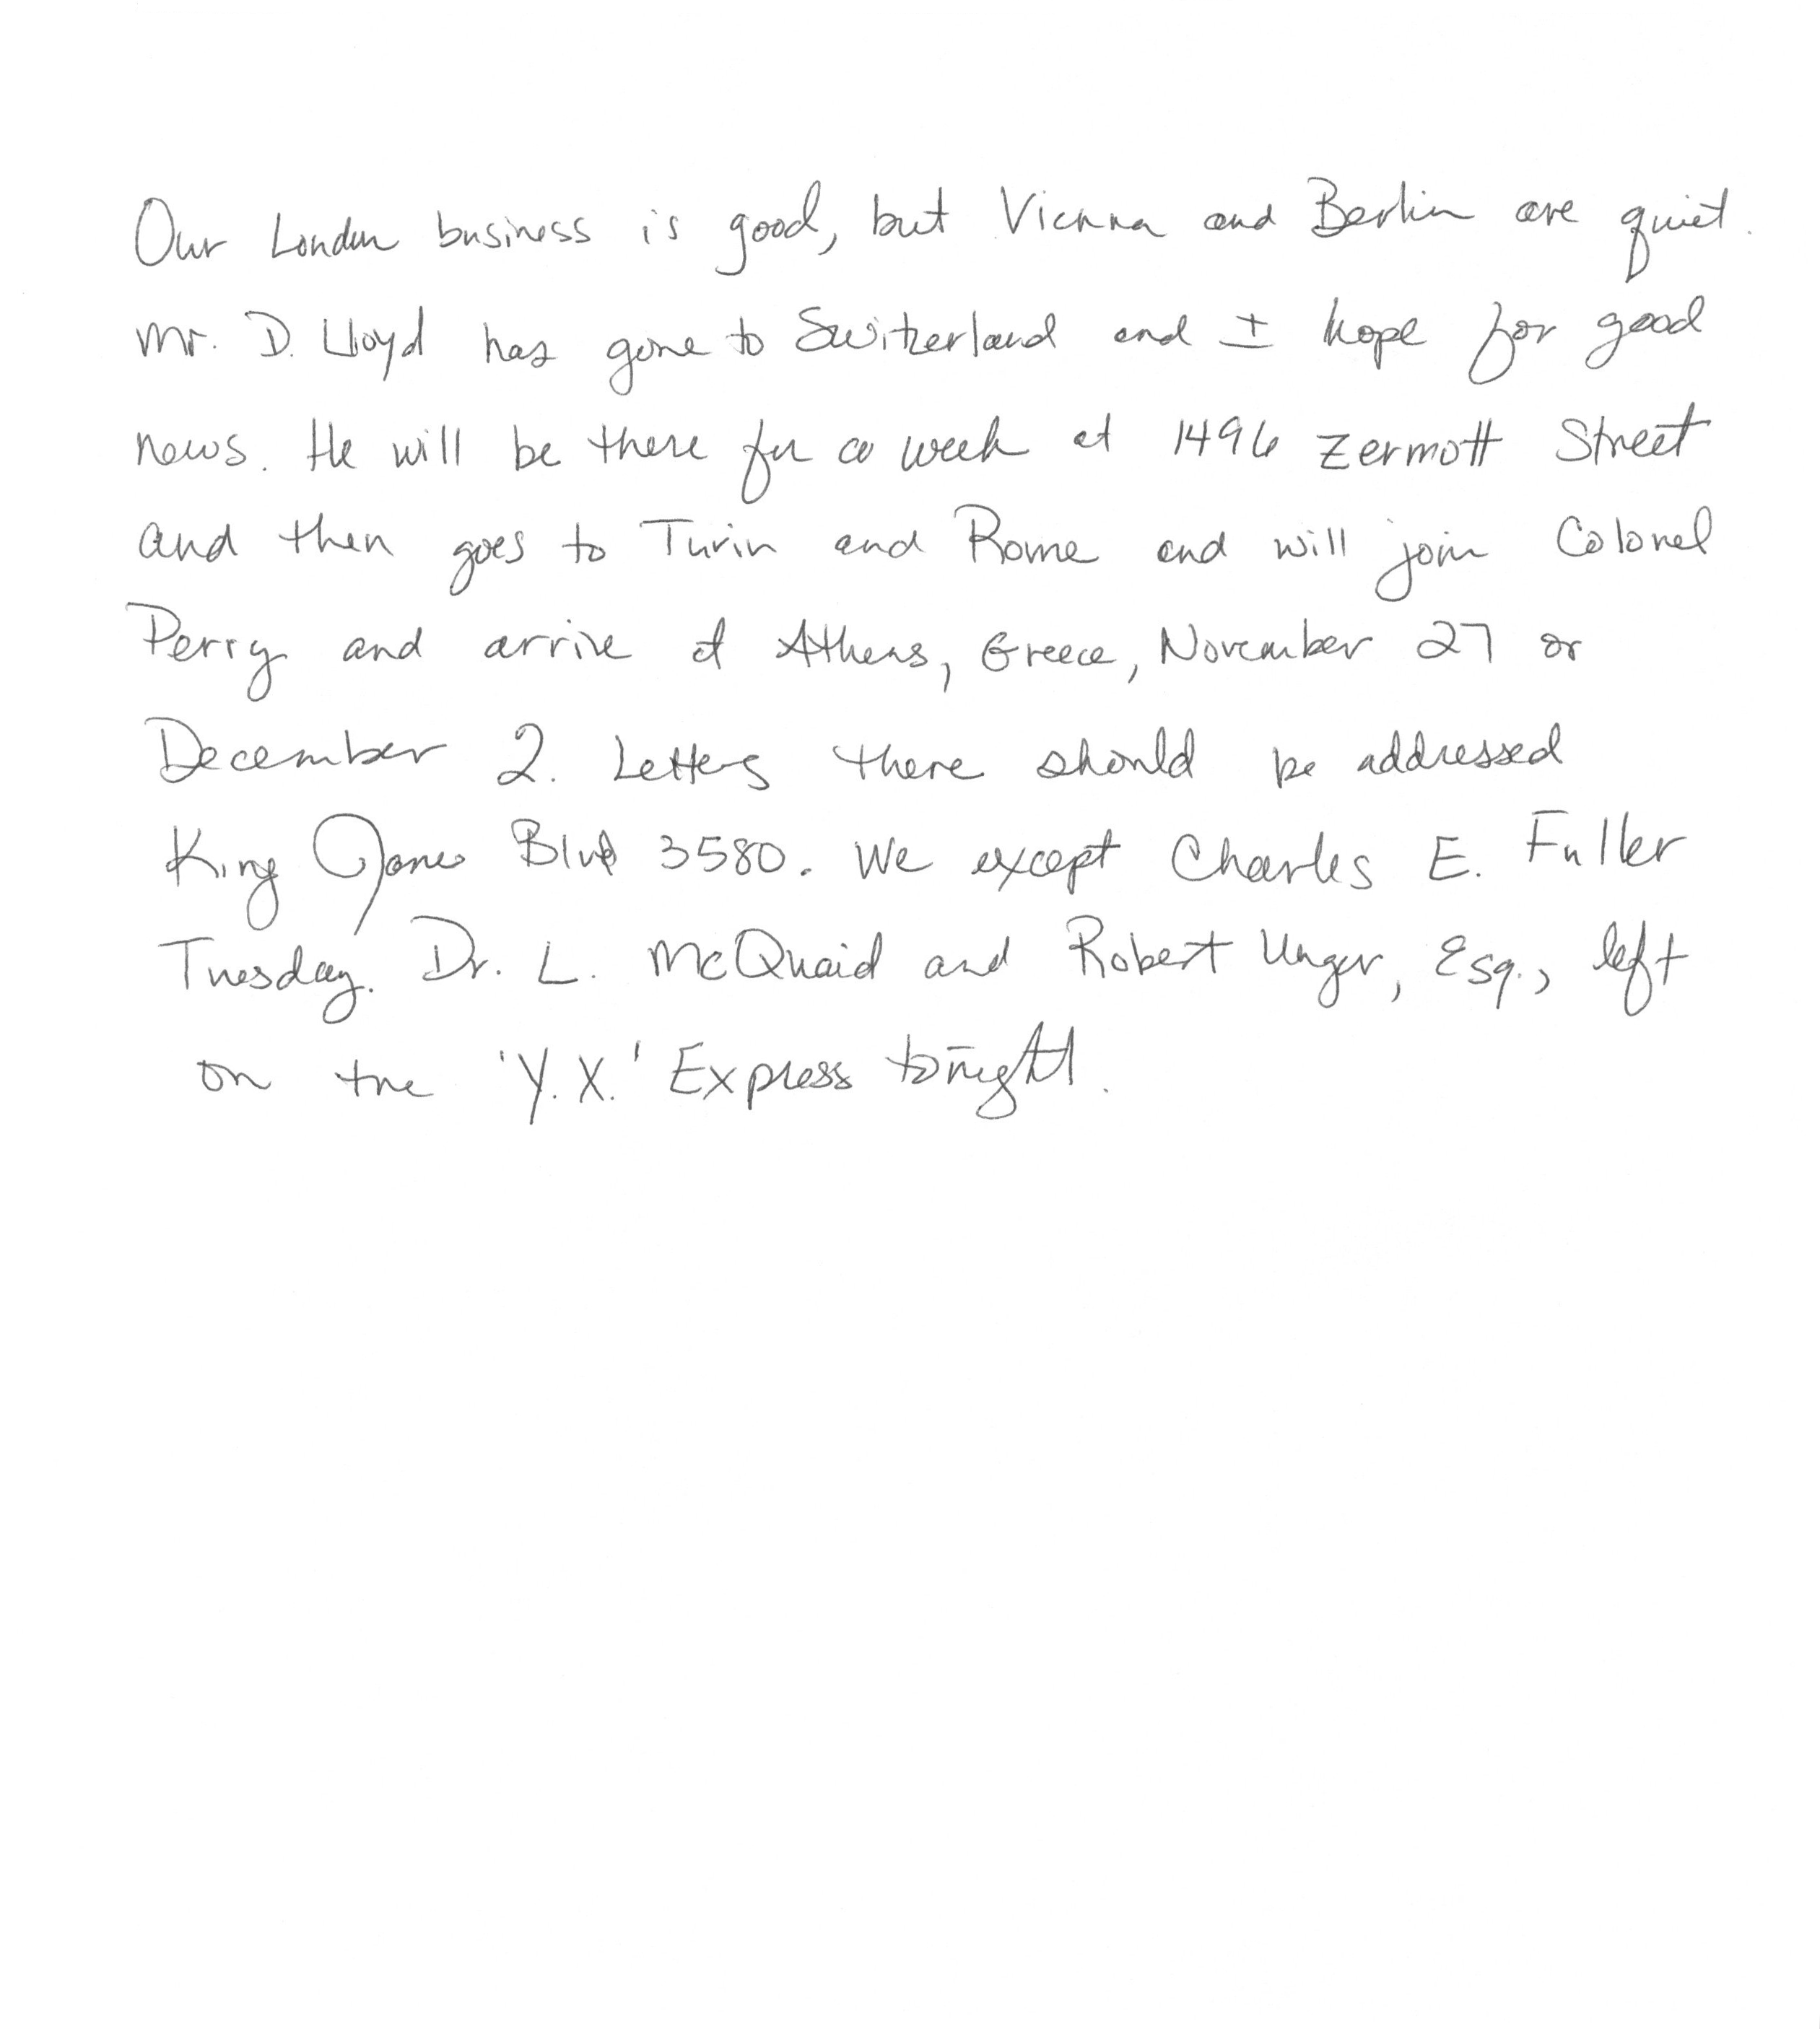 Our London business is good, but Vienna and Berlin are quiet.
Mr. D. Lloyd has gone to Switzerland and I hope for good
news. He will be there for a week at 1496 Zermott Street
and then goes to Turin and Rome and will join Colonel
Perry and arrive at Athens, Greece, November 27 or
December 2. Letters there should be addressed
King James Blvd 3580. We except Charles E. Fuller
Tuesday. Dr. L. McQuaid and Robert Unger, Esq., left
on the 'Y.X.' Express tonight.